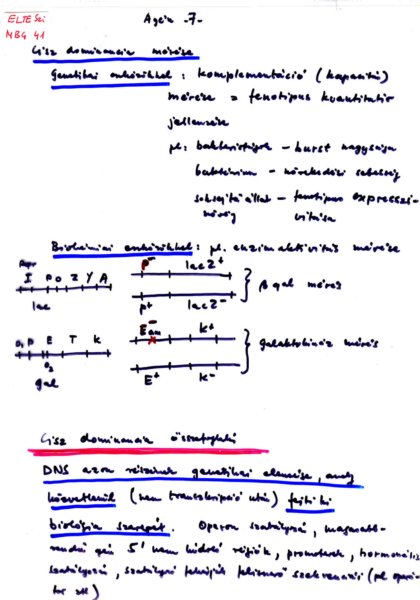 ELTE Szi Agcin -7-
MBG 41
Cisz dominancia mérése
Genetikai eszközökkel : komplementáció (kapacitás)
mérése = fenotípus kvantitatív
jellemzése
pl: bakteriofágok - burst nagysága
baktérium - növekedési sebesség
soksejtű állat - fenotípus expresszi-
növény vitása
Biokémiai eszközökkel : pl. enzimaktivitás mérése
Repr P⁻ lacZ⁺
I P O Z Y A
β gal mérés
lac P⁺ lacZ⁻
E⁻am K⁺
O₁ P E T K
galaktokináz mérés
O₂
gal E⁺ K⁻
Cisz dominancia összefoglaló
DNS azon részeinek genetikai elemzése, amely
közvetlenül (nem transzkripció után) fejti ki
biológiai szerepét. Operon szabályozó, magasabb-
rendű gén 5' nem kódoló régiók, promoterek, hormonális
szabályozás, szabályzó fehérjét felismerő szekvenciái (pl operá-
tor stb)